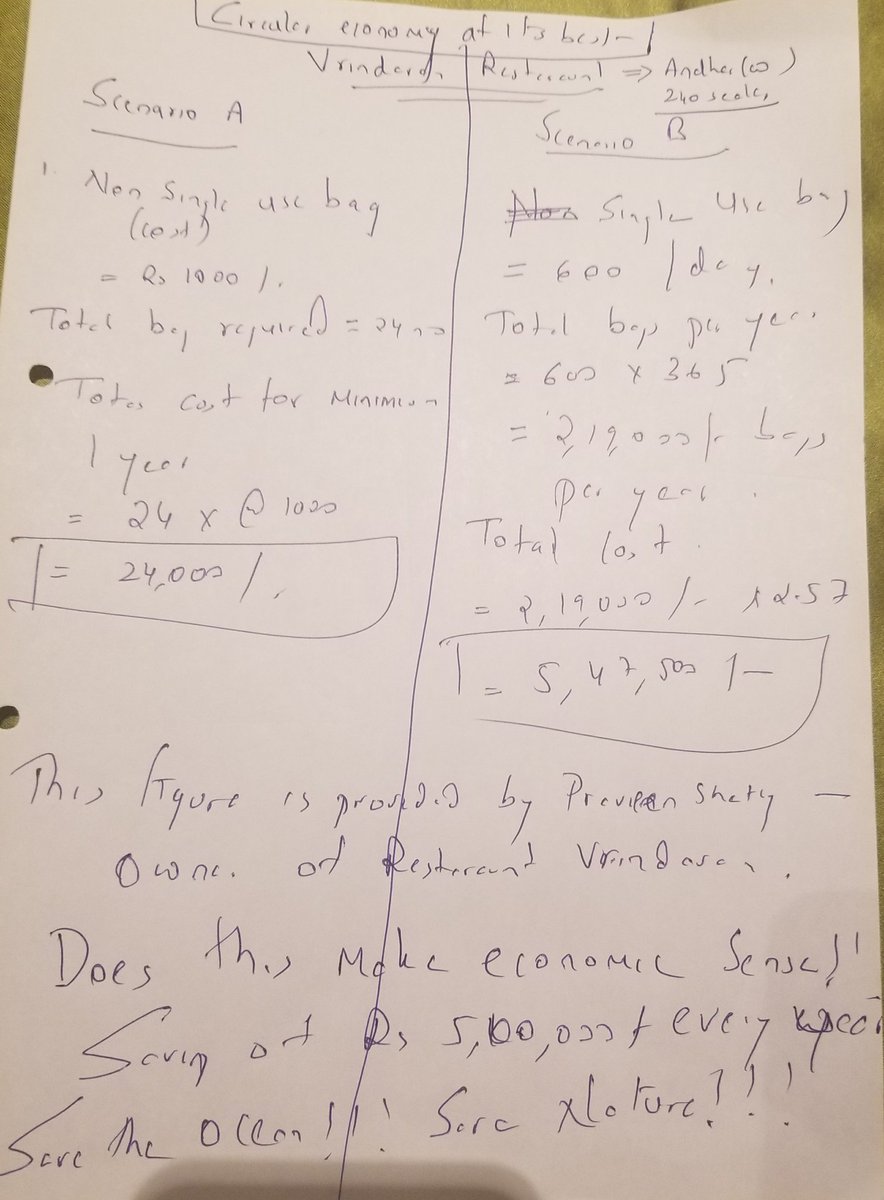 Circular economy at its best -
Vrindavan Restaurant => Andheri (W)
240 seats,
Scenario A
1. Non Single use bag
(cost)
= Rs 1000 /.
Total bag required = 24
Total cost for Minimum
1 year
= 24 x @ 1000
= 24,000 /.
Scenario B
Single Use bag
= 600 / day.
Total bags per year
= 600 x 365
= 2,19,000/- bags
per year.
Total Cost.
= 2,19,000 /- x 2.57
= 5,47,500 /-
This figure is provided by Praveen Shetty -
Owner of Restaurant Vrindavan.
Does this Make economic Sense!!
Saving of Rs 5,00,000 + every year
Save the Ocean!!! Save Nature!!!